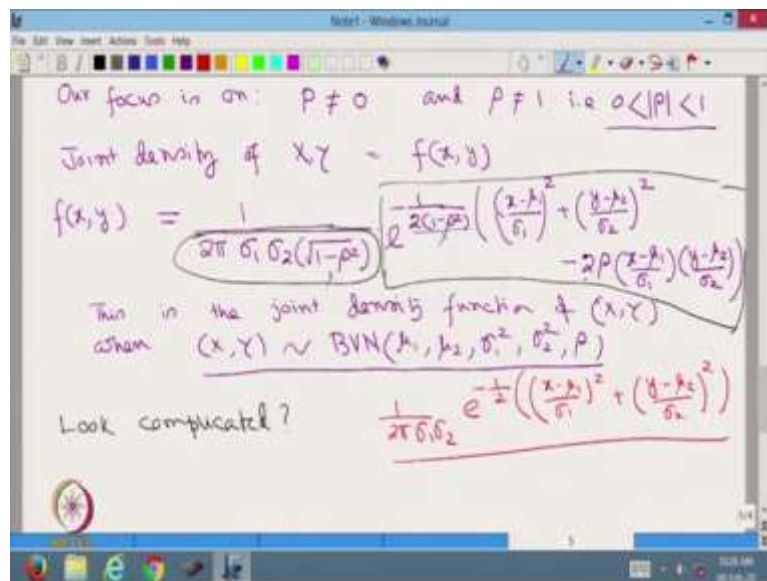 Note1 - Windows Journal
File Edit View Insert Actions Tools Help
Our focus is on: ρ ≠ 0 and ρ ≠ 1 i.e 0<|ρ|<1
Joint density of X,Y = f(x,y)
f(x,y) = 1/(2π σ₁ σ₂(√1-ρ²)) e^{-1/(2(1-ρ²)) ((x-μ₁/σ₁)² + (y-μ₂/σ₂)²
-2ρ(x-μ₁/σ₁)(y-μ₂/σ₂))}
This is the joint density function of (X,Y)
when (X,Y) ~ BVN(μ₁, μ₂, σ₁², σ₂², ρ)
Look complicated? 1/(2π σ₁σ₂) e^{-1/2((x-μ₁/σ₁)² + (y-μ₂/σ₂)²)}